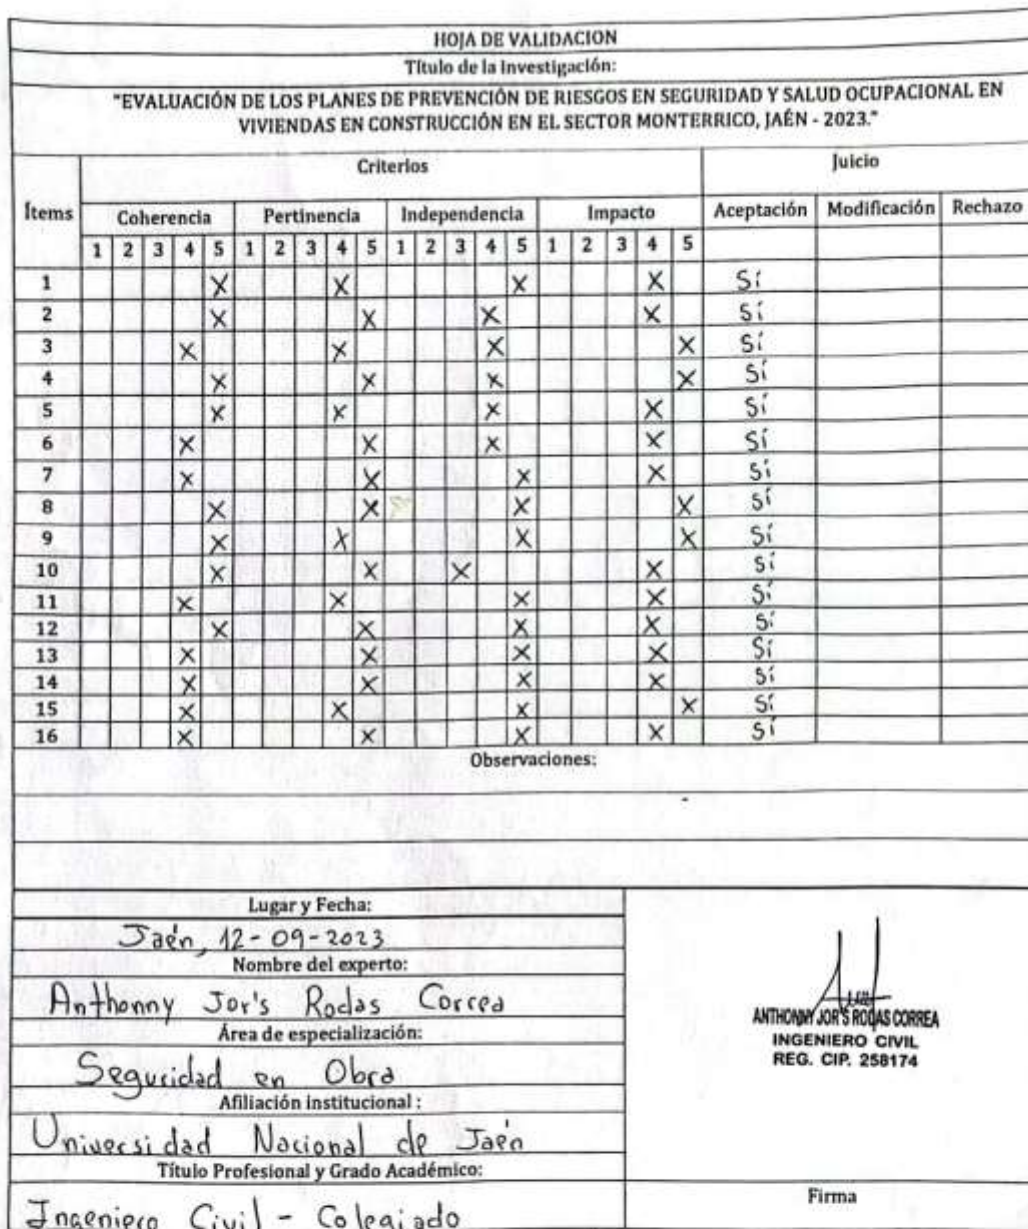 HOJA DE VALIDACION
Título de la Investigación:
"EVALUACIÓN DE LOS PLANES DE PREVENCIÓN DE RIESGOS EN SEGURIDAD Y SALUD OCUPACIONAL EN
VIVIENDAS EN CONSTRUCCIÓN EN EL SECTOR MONTERRICO, JAÉN - 2023."
Ítems Criterios Juicio
Coherencia Pertinencia Independencia Impacto Aceptación Modificación Rechazo
1 2 3 4 5 1 2 3 4 5 1 2 3 4 5 1 2 3 4 5
1 X X X X Sí
2 X X X X Sí
3 X X X X Sí
4 X X X X Sí
5 X X X X Sí
6 X X X X Sí
7 X X X X Sí
8 X X X X Sí
9 X X X X Sí
10 X X X X Sí
11 X X X X Sí
12 X X X X Sí
13 X X X X Sí
14 X X X X Sí
15 X X X X Sí
16 X X X X Sí
Observaciones:
Lugar y Fecha:
Jaén, 12-09-2023
Nombre del experto:
Anthonny Jor's Rodas Correa
Área de especialización:
Seguridad en Obra
Afiliación institucional:
Universidad Nacional de Jaén
Título Profesional y Grado Académico:
Ingeniero Civil - Colegiado
ANTHONNY JOR'S RODAS CORREA
INGENIERO CIVIL
REG. CIP. 258174
Firma